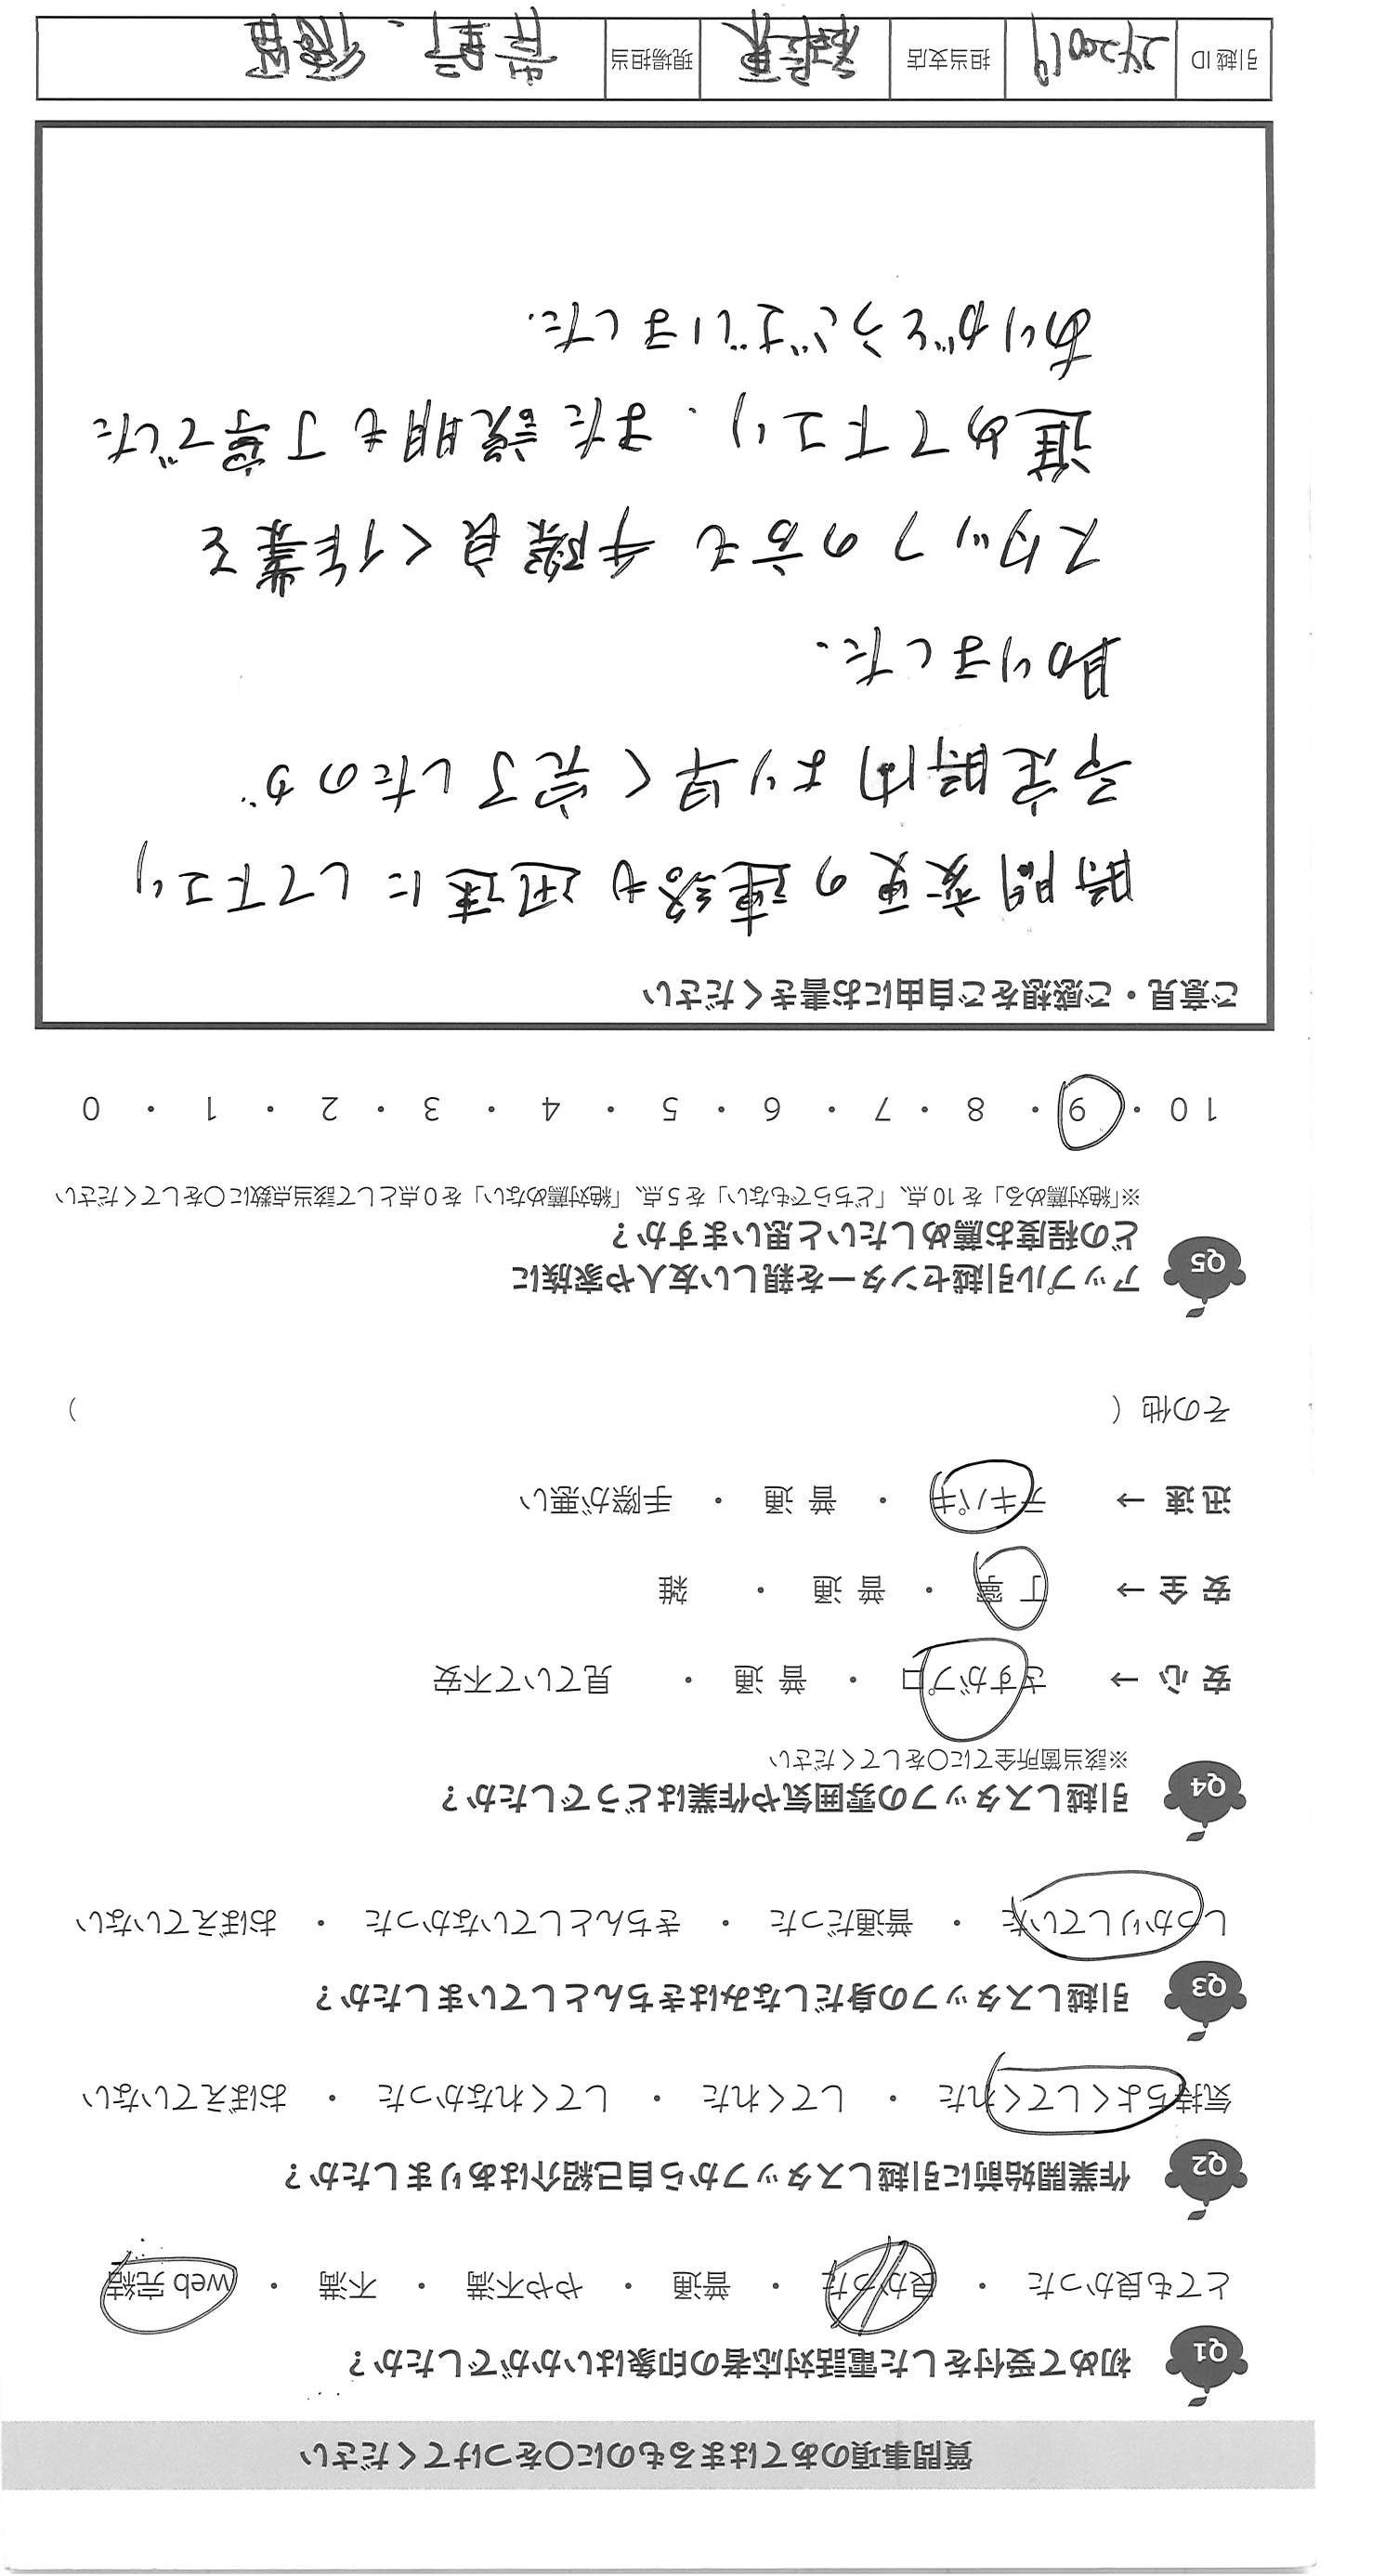 質問事項のあてはまるものに〇をつけてください
Q1 初めて受付をした電話対応者の印象はいかがでしたか？
とても良かった ・ 良かった ・ 普通 ・ やや不満 ・ 不満 ・ web 完結
Q2 作業開始前に引越しスタッフから自己紹介はありましたか？
気持ちよくしてくれた ・ してくれた ・ してくれなかった ・ おぼえていない
Q3 引越しスタッフの身だしなみはきちんとしていましたか？
しっかりしていた ・ 普通だった ・ きちんとしていなかった ・ おぼえていない
Q4 引越しスタッフの雰囲気や作業はどうでしたか？
※該当箇所全てに〇をしてください
安 心 → さすがプロ ・ 普 通 ・ 見ていて不安
安 全 → 丁 寧 ・ 普 通 ・ 雑
迅 速 → テキパキ ・ 普 通 ・ 手際が悪い
その他（ ）
Q5 アップル引越センターを親しい友人や家族に
どの程度お薦めしたいと思いますか？
※「絶対薦める」を 10 点、「どちらでもない」を 5 点、「絶対薦めない」を 0 点として該当点数に〇をしてください
10 ・ 9 ・ 8 ・ 7 ・ 6 ・ 5 ・ 4 ・ 3 ・ 2 ・ 1 ・ 0
ご意見・ご感想をご自由にお書きください
時間変更の連絡も迅速にして下さり
予定時間より早く完了したのが
助りました.
スタッフの方も手際良く作業を
進めて下さり. また説明も丁寧でした
ありがとうございました.
引越 ID 2420019 担当支店 現場担当